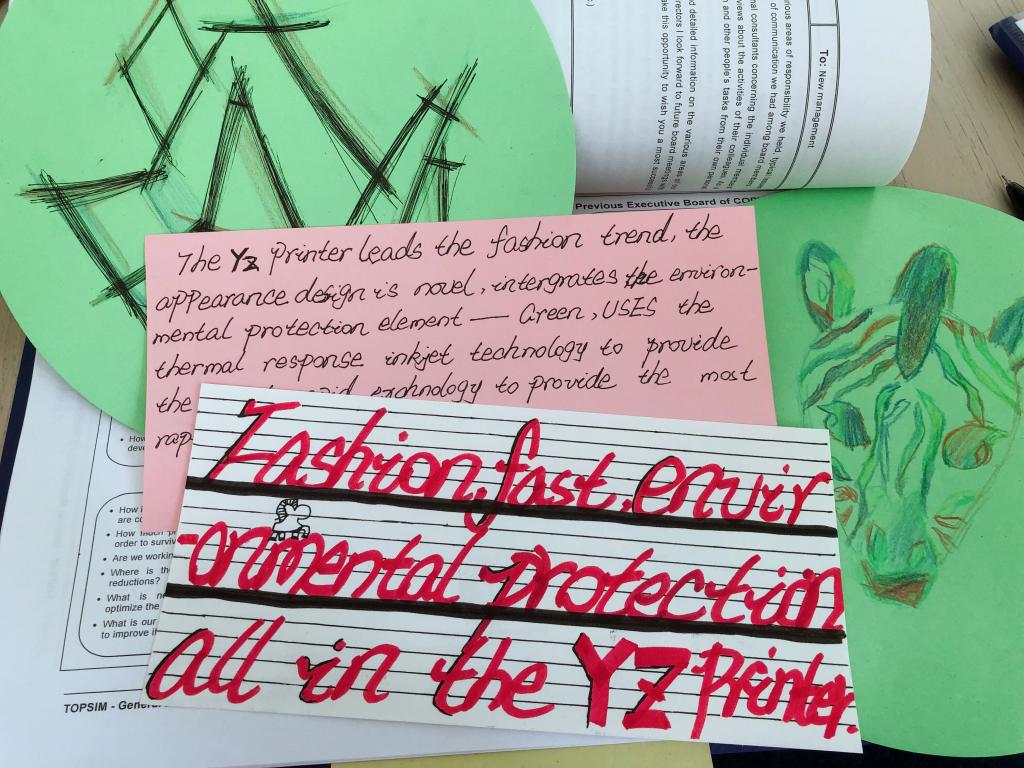 To: New management
rious areas of responsibility we held, typical
of communication we had among board
nal consultants concerning the individual
views about the activities of their colleagues.
n and other people's tasks from their own
nd detailed information on the various areas
rectors I look forward to future board meetings
ake this opportunity to wish you a most
Previous Executive Board of
The YZ Printer leads the fashion trend, the
appearance design is novel, intergrates the environ-
mental protection element — Green, USES the
thermal response inkjet technology to provide
the technology to provide the most
rap
Fashion, fast, envir
-onmental protection
all in the YZ Printer.
• How
deve
• How
are
• How much
order to surviv
• Are we workin
• Where is th
reductions?
• What is
optimize the
• What is our
to improve
TOPSIM - General